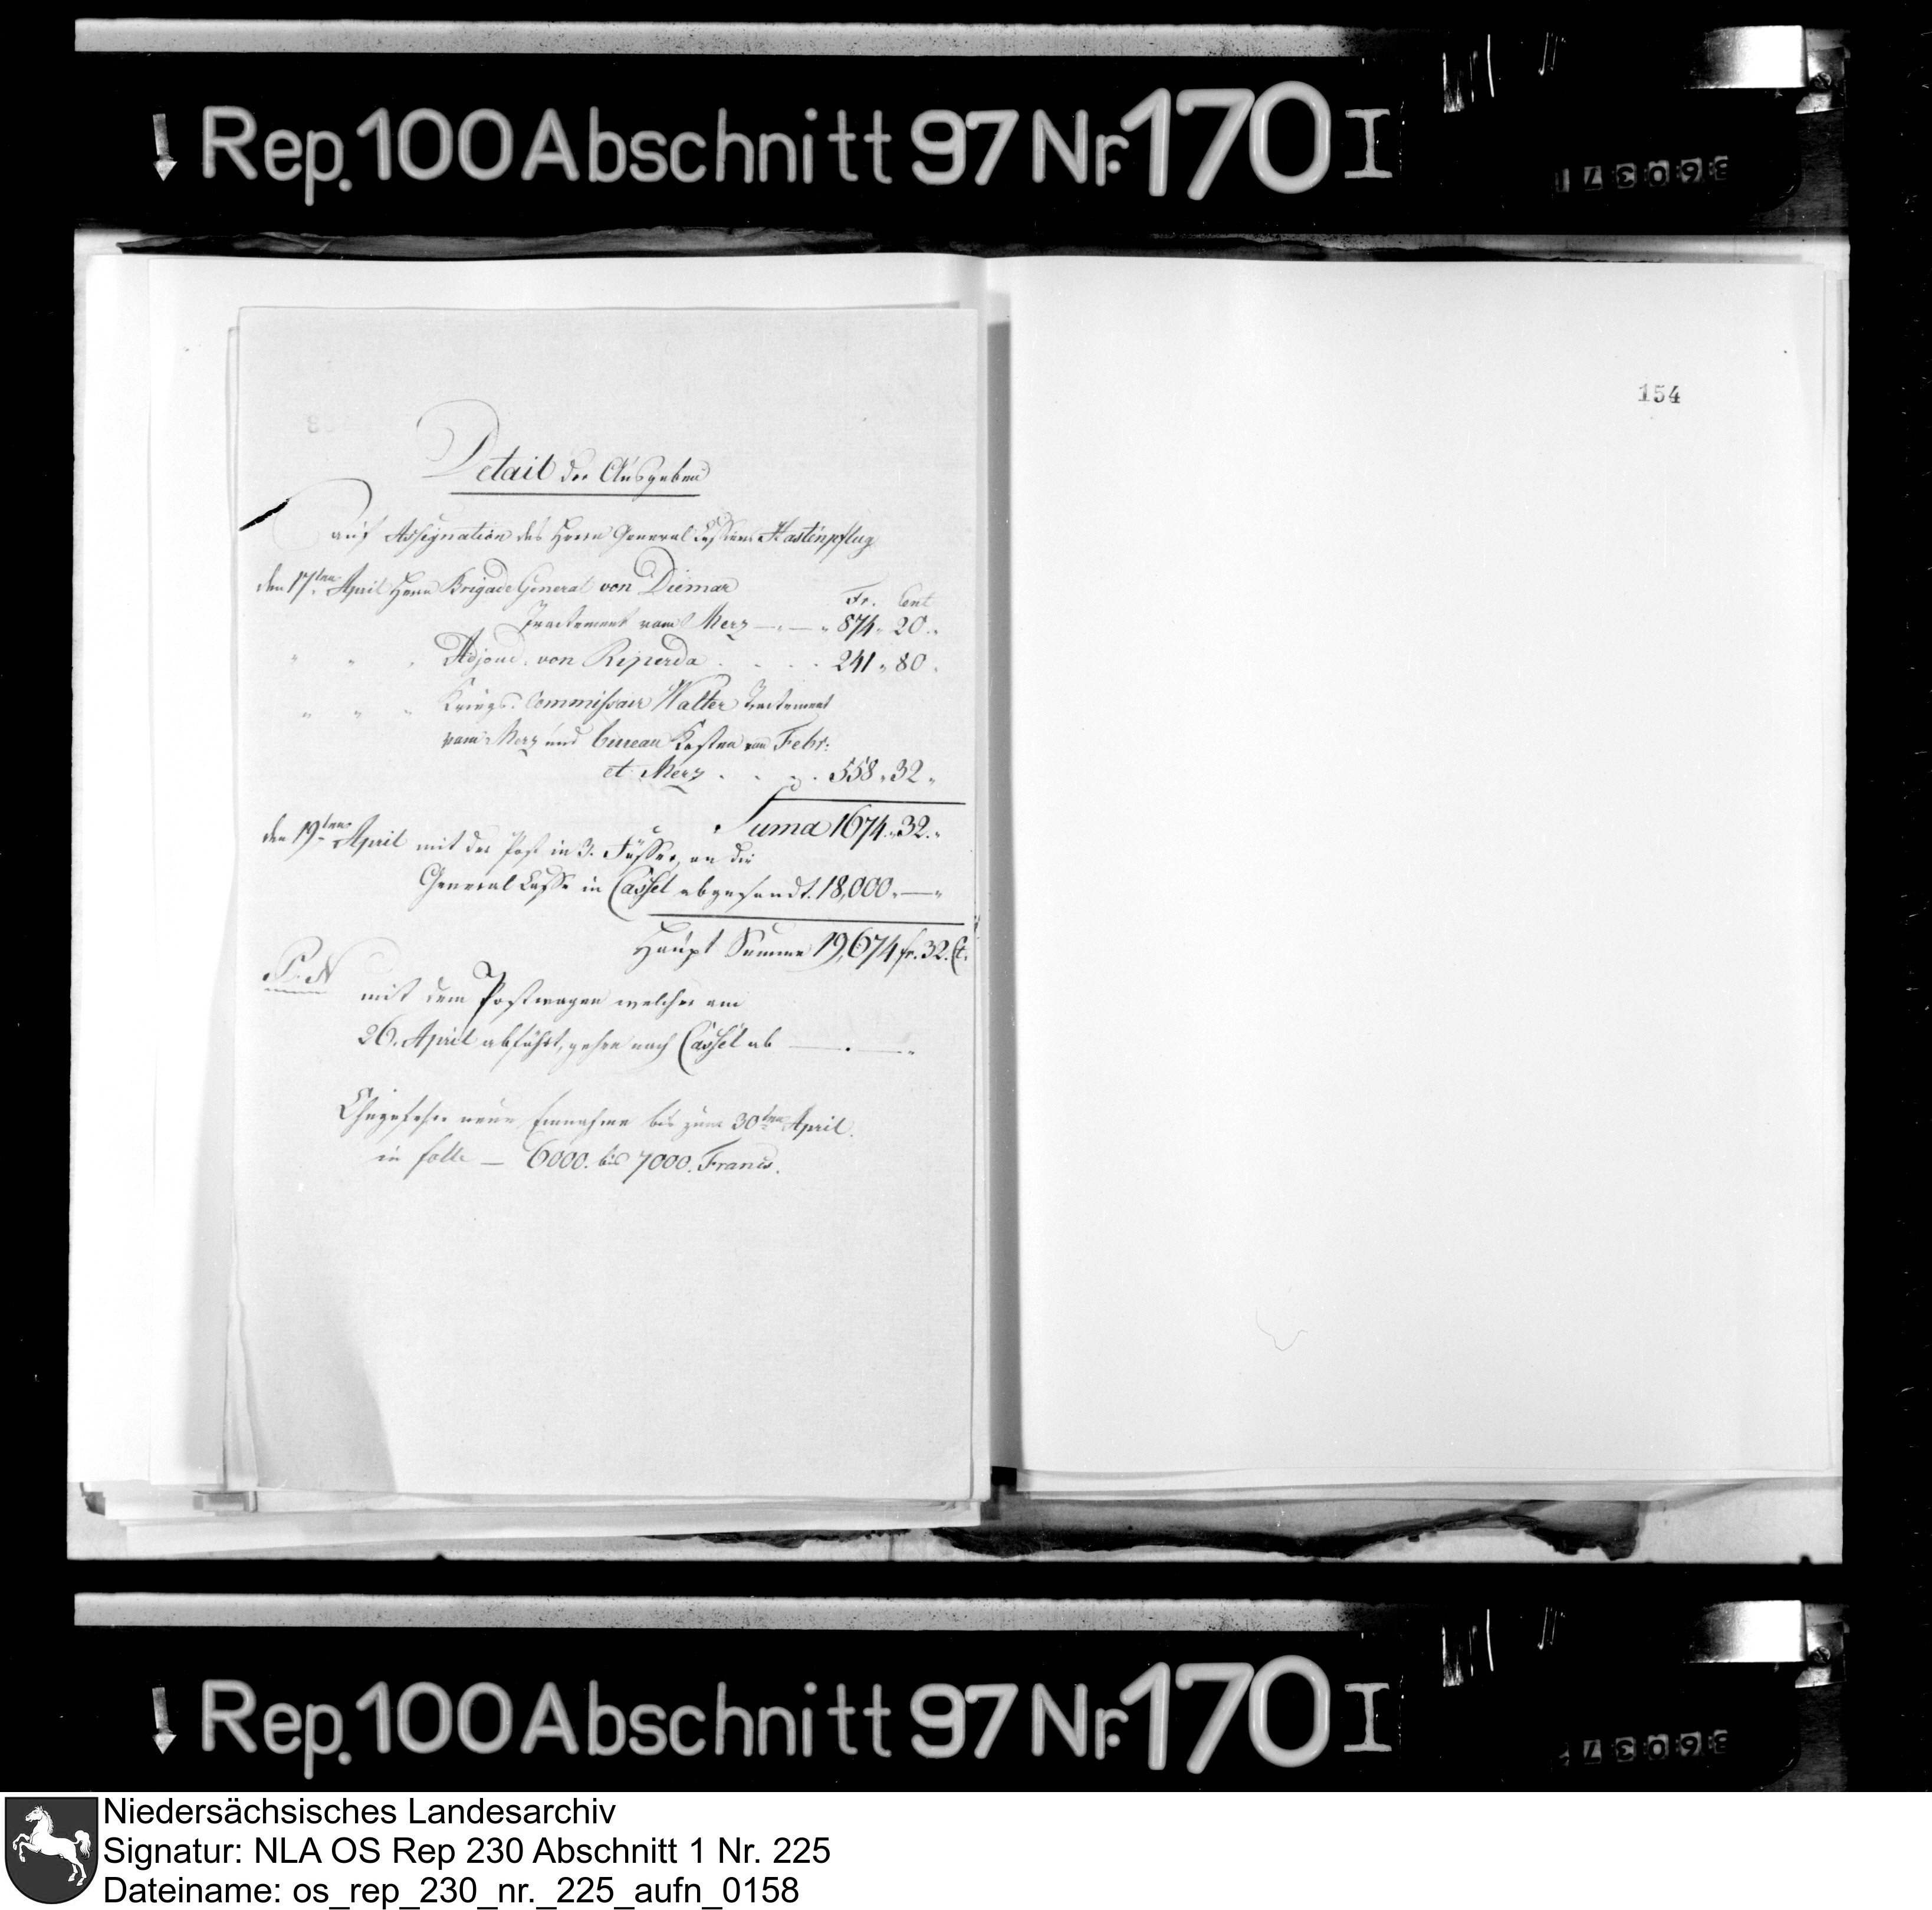 Rep. 100 Abschnitt 97 Nr. 170 I
154
Detail der Ausgaben
auf Assignation des Herrn General Cassirers Kastenpflug
den 17ten April Herrn Brigade General von Diemar
Fr. Cent
Tractement vom Merz — " — " 874 " 20 "
" " " Adjoud. von Riperda . . . . 241 " 80 "
" " " Kriegs-Commissair Walter Tractement
vom Merz und bureau Kosten von Febr:
et Merz . . . . 558 " 32 "
Suma 1674 " 32 "
den 19ten April mit der Post in 3. Fässer, an die
General Casse in Cassel abgesandt. 18,000 " — "
Haupt Summe 19,674 fr. 32. Ct.
P. N
mit dem Postwagen welcher am
26. April abfährt, gehen nach Cassel ab — . — "
neue Einnahme bis zum 30ten April.
in 6000. bis 7000. Francs.
Rep. 100 Abschnitt 97 Nr. 170 I
Niedersächsisches Landesarchiv
Signatur: NLA OS Rep 230 Abschnitt 1 Nr. 225
Dateiname: os_rep_230_nr._225_aufn_0158